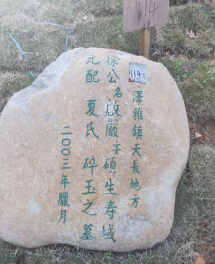 114
114
澤雅鎮天長地方
徐公名啟嚴字碩生寿域
元配夏氏碎玉之墓
二〇〇三年臘月